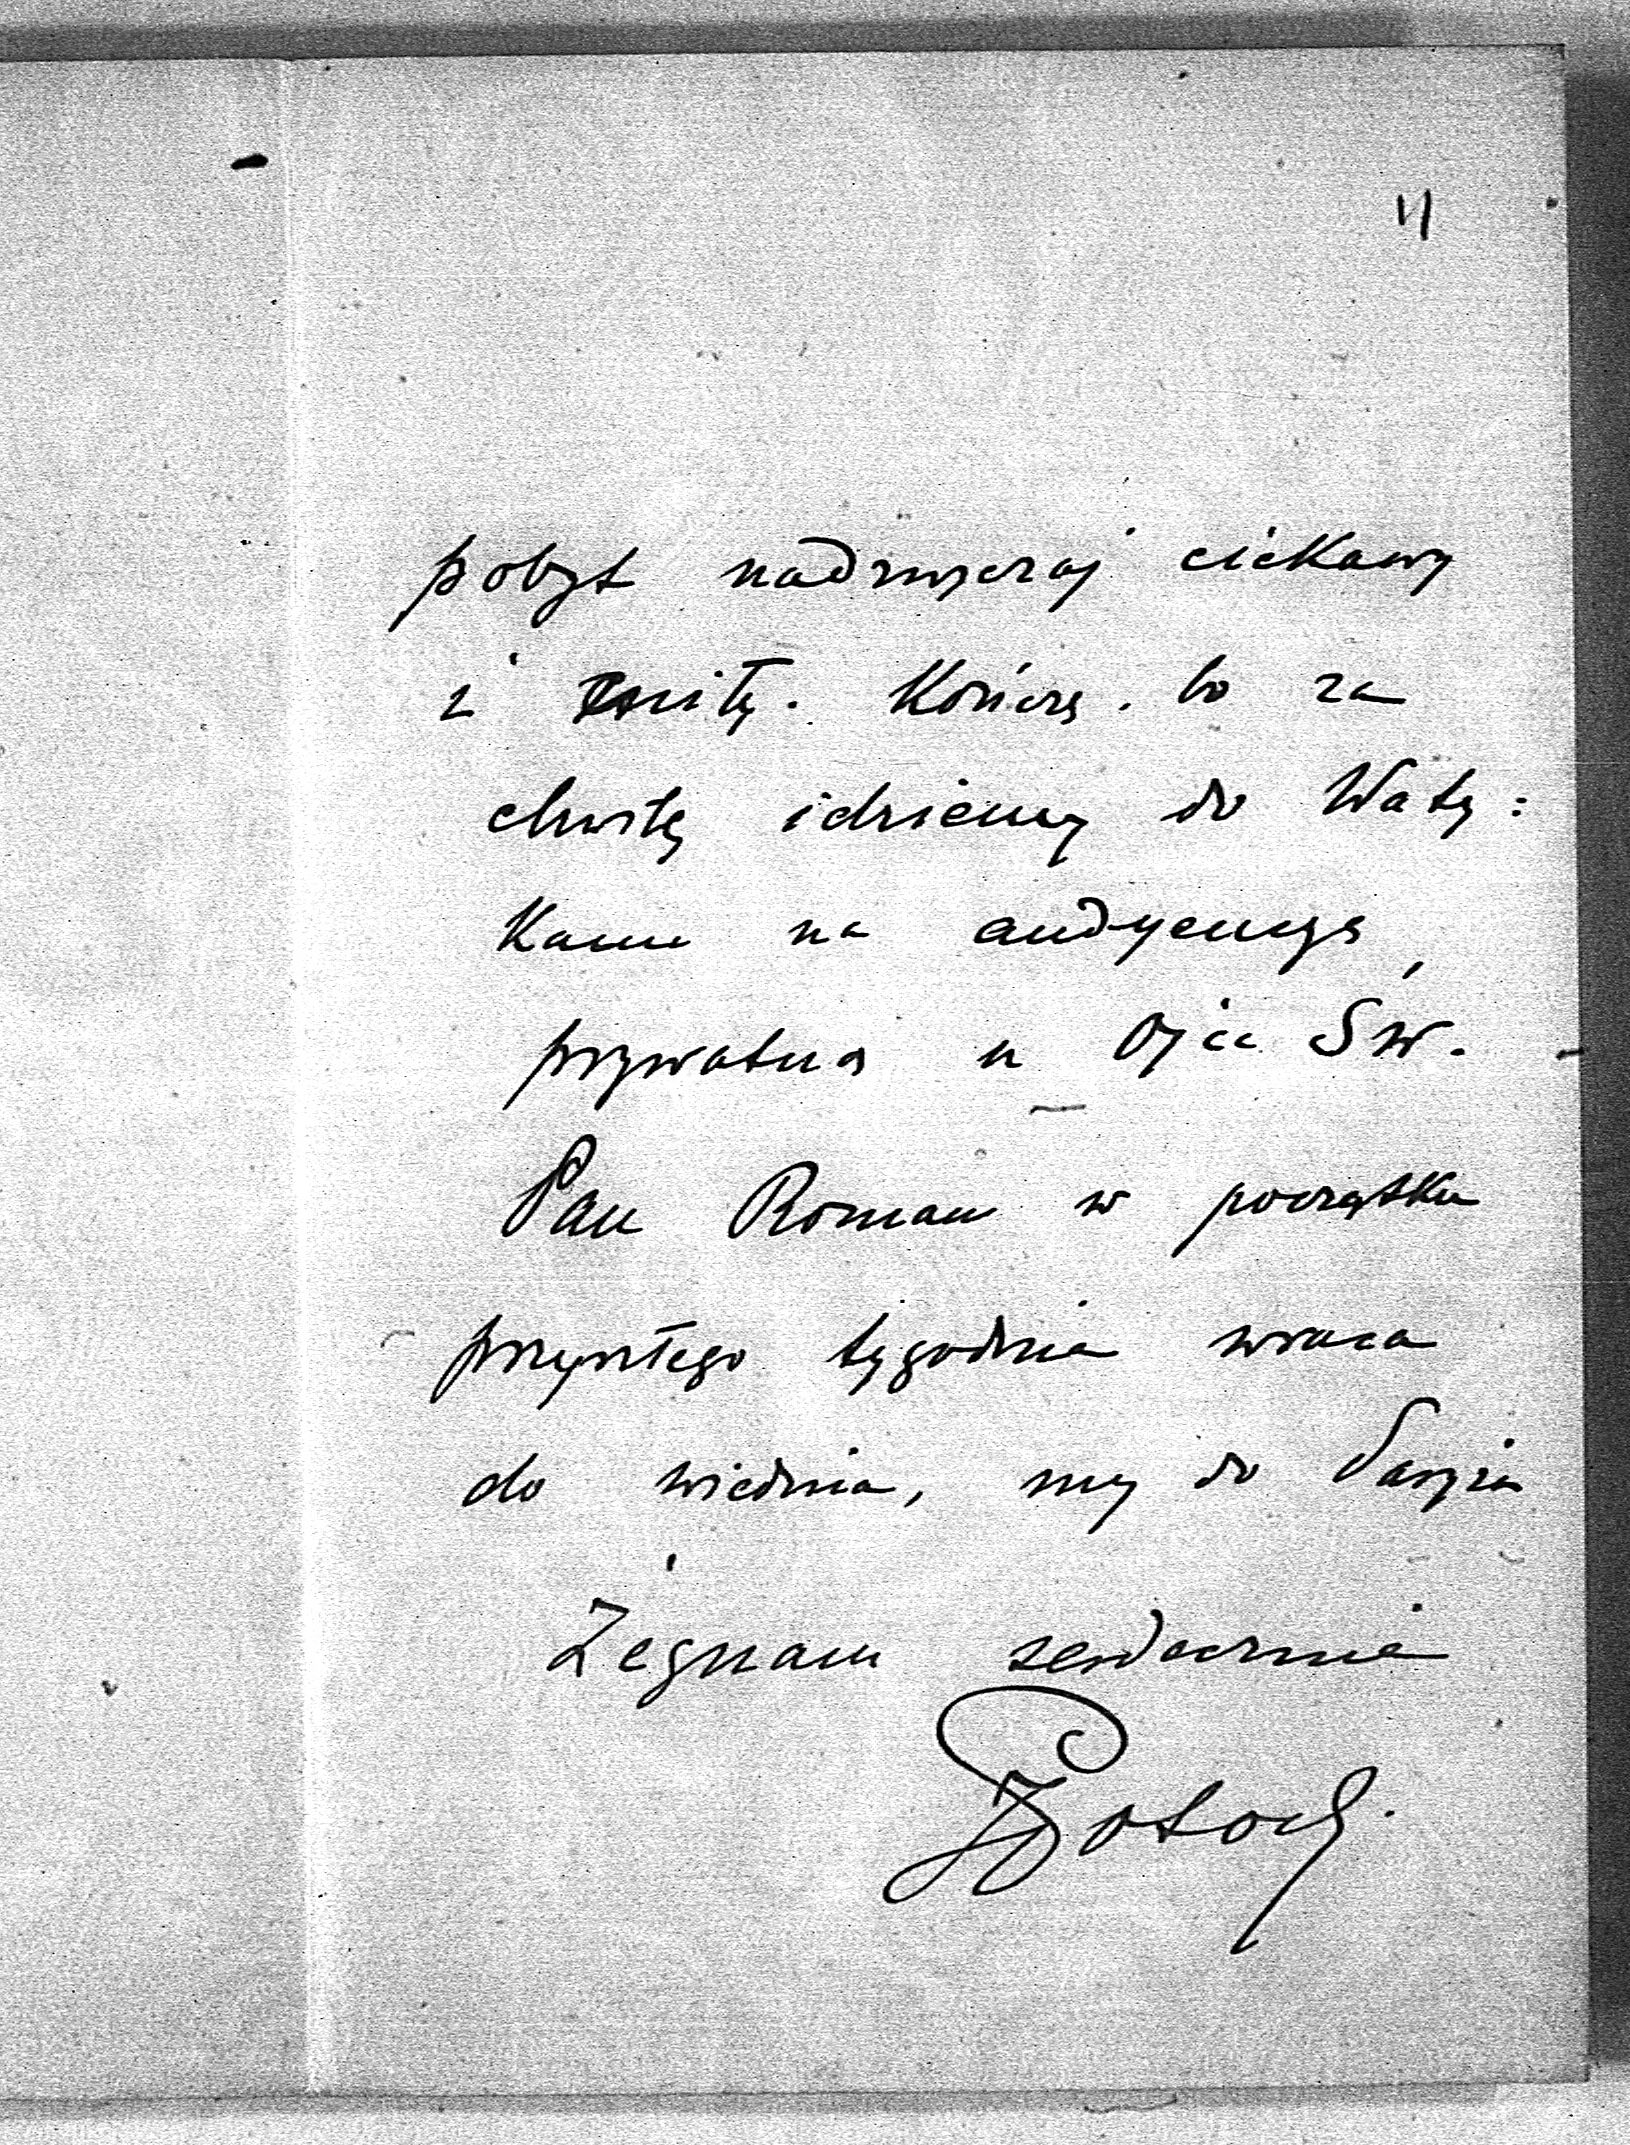 pobyt nadzwyczaj ciekawy
i miły. Kończę. bo za
chwilę idziemy do Waty:
kanu na audyencyę
prywatną u Ojca Św.
Pan Roman w początku
przyszłego tygodnia wraca
do Wiednia, my do Paryża
Żegnam serdecznie
Potocki